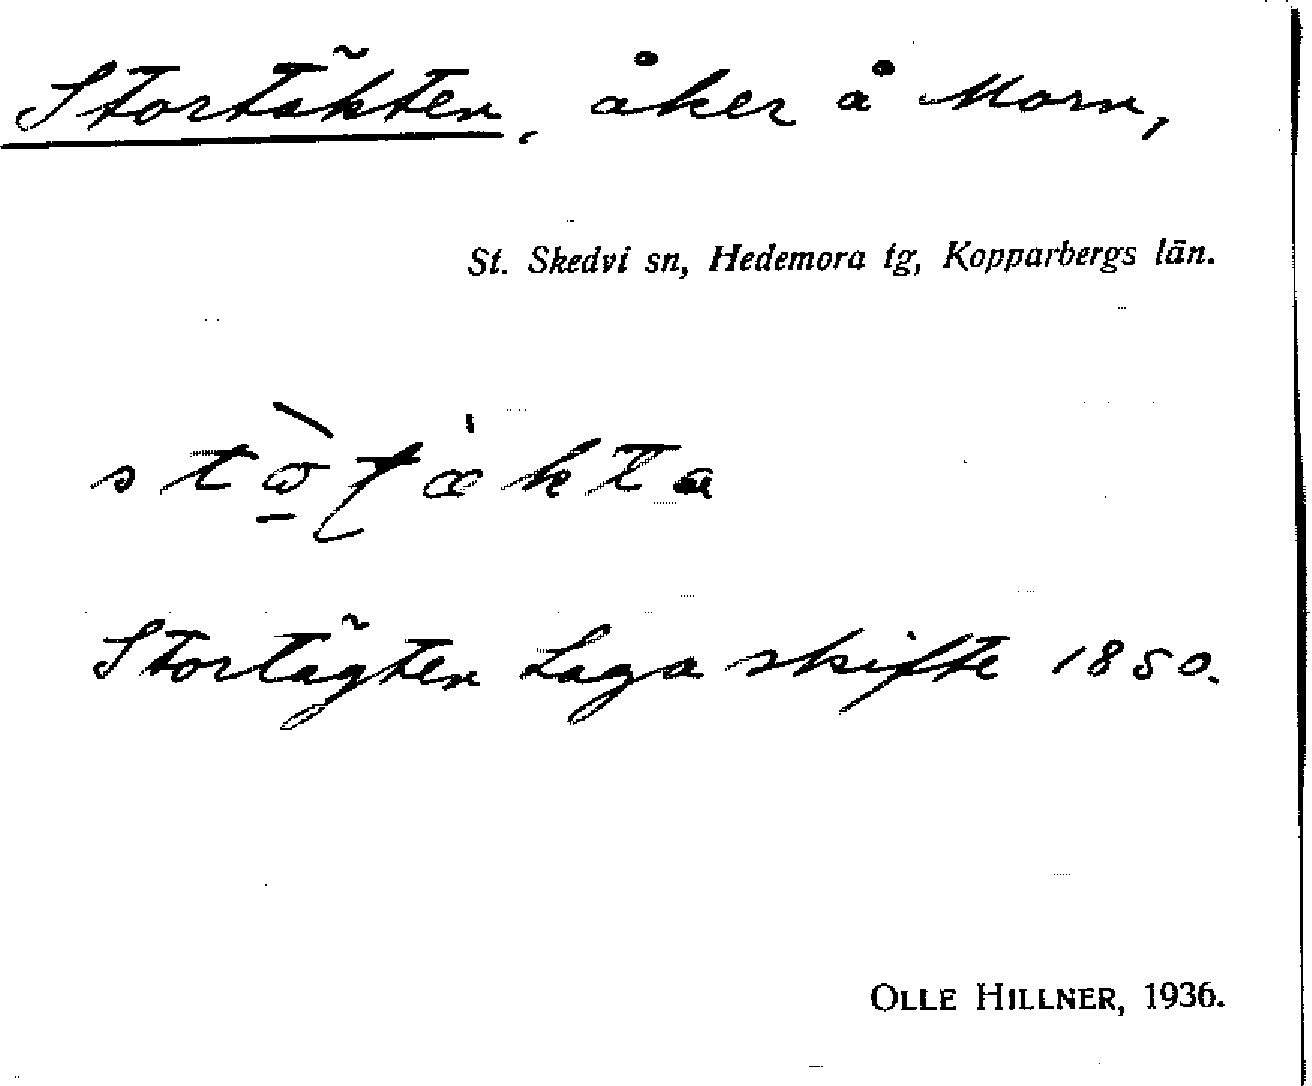 Stortäkten, åker å Morn,
St. Skedvi sn, Hedemora tg, Kopparbergs län.
Stortägten Laga skifte 1850.
OLLE HILLNER, 1936.